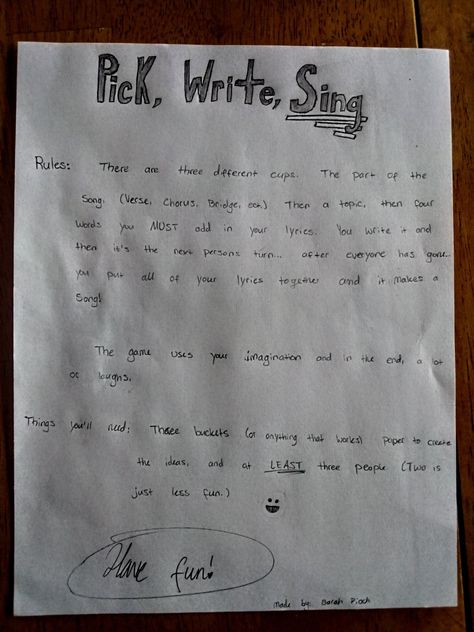 Pick, Write, Sing
Rules: There are three different cups. The part of the
Song. (Verse, Chorus, Bridge, ect.) Then a topic, then four
words you MUST add in your lyrics. You write it and
then it's the next persons turn... after everyone has gone..
you put all of your lyrics together and it makes a
Song!
The game uses your imagination and in the end, a lot
of laughs.
Things you'll need: Three buckets (or anything that works) paper to create
the ideas, and at LEAST three people (Two is
just less fun.)
Have fun!
made by: Sarah